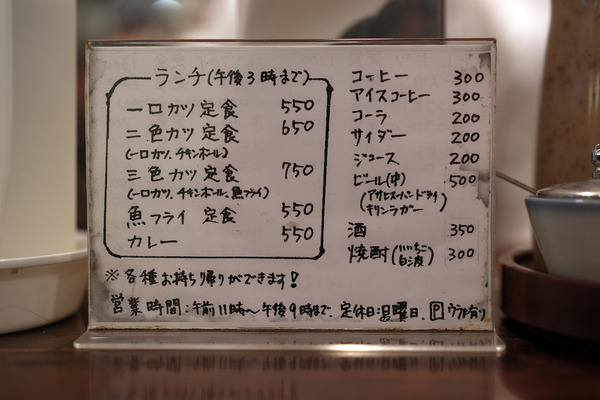 ランチ(午後3時まで)
一口カツ定食 550
二色カツ定食 650
(一口カツ、チキンボール)
三色カツ定食 750
(一口カツ、チキンボール、魚フライ)
魚フライ 定食 550
カレー 550
コーヒー 300
アイスコーヒー 300
コーラ 200
サイダー 200
ジュース 200
ビール(中) 500
(アサヒスーパードライ
キリンラガー)
酒 350
焼酎(いいちこ 白波) 300
※各種お持ち帰りができます!
営業時間:午前11時〜午後9時まで. 定休日:日曜日. Pウラ有り